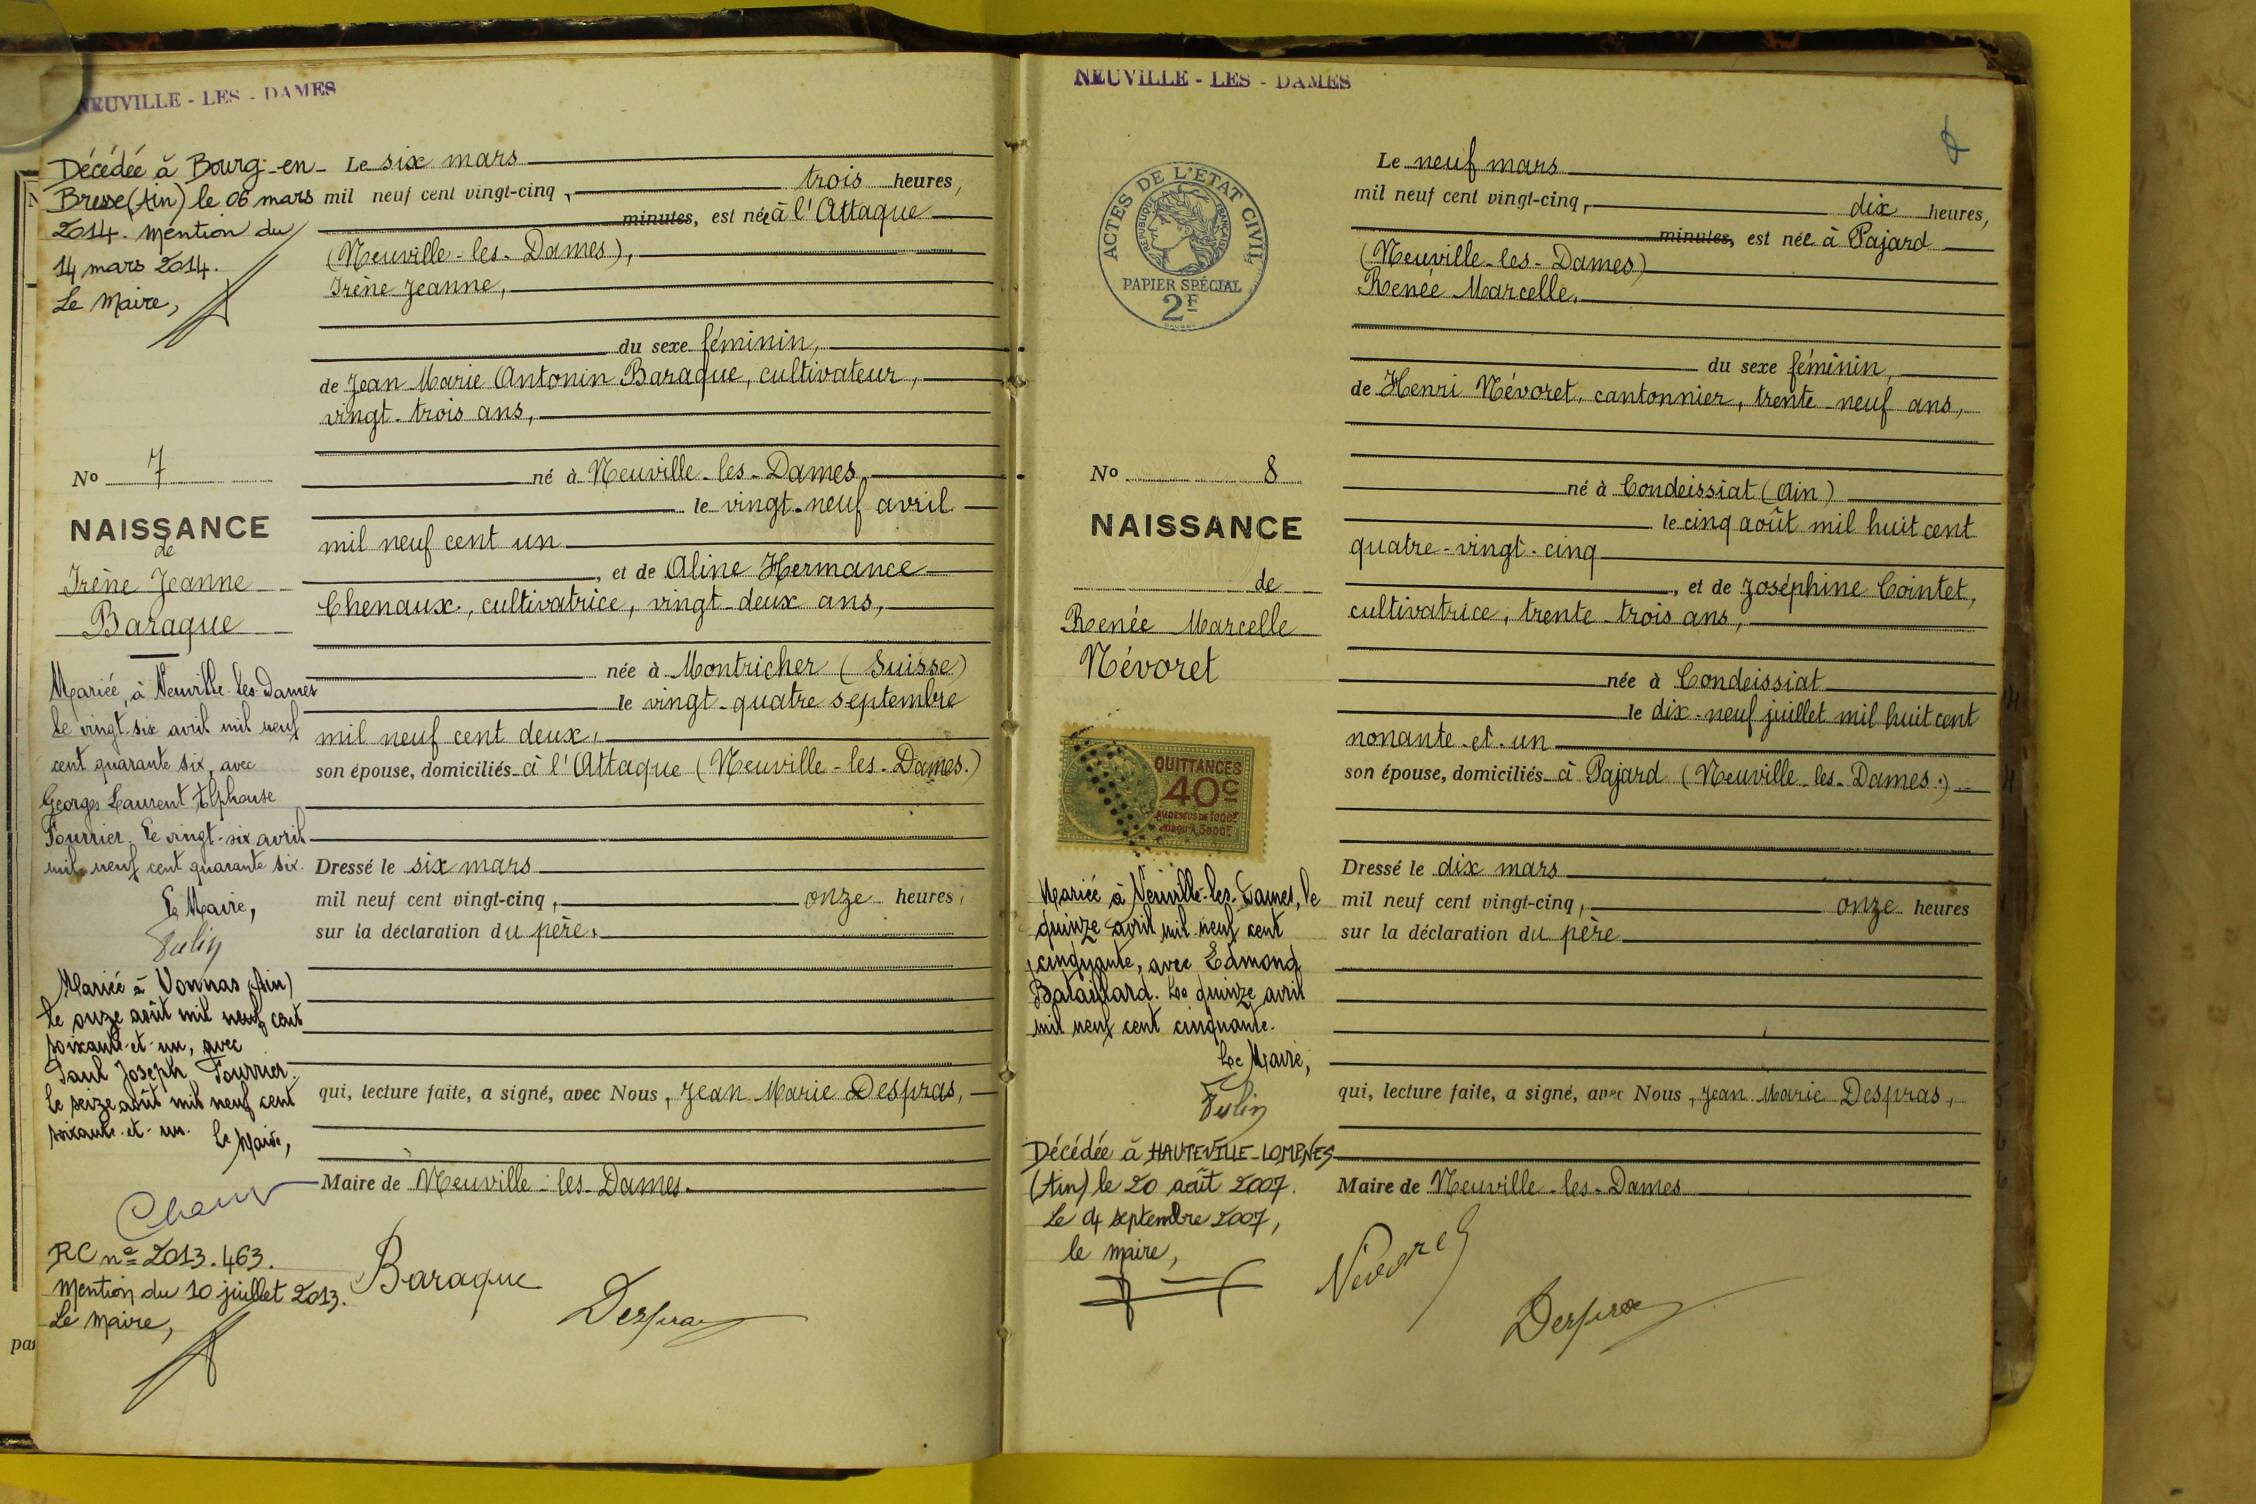 NEUVILLE - LES - DAMES
Décédée à Bourg-en-
Bresse (Ain) le 06 mars
2014. Mention du
14 mars 2014.
Le Maire,
No 7
NAISSANCE
de
Irène Jeanne
Baraque
Mariée, à Neuville-les-Dames
le vingt-six avril mil neuf
cent quarante six, avec
Georges Laurent Alphonse
Fourrier. Le vingt-six avril
mil neuf cent quarante six.
Le Maire,
Mariée à Vonnas (Ain)
le onze août mil neuf cent
soixante-et-un, avec
Paul Joseph Fourrier.
le seize août mil neuf cent
soixante-et-un. Le Maire,
RC nº 2013.463.
Mention du 10 juillet 2013.
Le Maire,
Le six mars
mil neuf cent vingt-cinq, trois heures,
minutes, est née à l'Attaque
(Neuville-les-Dames),
Irène Jeanne,
du sexe féminin,
de Jean Marie Antonin Baraque, cultivateur,
vingt-trois ans,
né à Neuville-les-Dames
le vingt-neuf avril
mil neuf cent un
, et de Aline Hermance
Chenaux, cultivatrice, vingt-deux ans,
née à Montricher (Suisse)
le vingt-quatre septembre
mil neuf cent deux,
son épouse, domiciliés à l'Attaque (Neuville-les-Dames.)
Dressé le six mars
mil neuf cent vingt-cinq, onze heures,
sur la déclaration du père,
qui, lecture faite, a signé, avec Nous, Jean Marie Despras,
Maire de Neuville-les-Dames.
Baraque
Despras
NEUVILLE - LES - DAMES
8
ACTES DE L'ÉTAT CIVIL
RÉPUBLIQUE FRANÇAISE
PAPIER SPÉCIAL
2F
No 8
NAISSANCE
de
Renée Marcelle
Névoret
QUITTANCES
40c
AU-DESSUS DE 1000F
JUSQU'À 3000F
Mariée à Neuville-les-Dames, le
quinze avril mil neuf cent
cinquante, avec Edmond
Bataillard. Le quinze avril
mil neuf cent cinquante.
Le Maire,
Décédée à HAUTEVILLE-LOMPNES
(Ain) le 20 août 2007.
Le 04 septembre 2007,
le maire,
Le neuf mars
mil neuf cent vingt-cinq, dix heures,
minutes, est née à Pajard
(Neuville-les-Dames)
Renée Marcelle,
du sexe féminin,
de Henri Névoret, cantonnier, trente-neuf ans,
né à Condeissiat (Ain)
le cinq août mil huit cent
quatre-vingt-cinq
, et de Joséphine Cointet,
cultivatrice, trente-trois ans,
née à Condeissiat
le dix-neuf juillet mil huit cent
nonante-et-un
son épouse, domiciliés à Pajard (Neuville-les-Dames.)
Dressé le dix mars
mil neuf cent vingt-cinq, onze heures
sur la déclaration du père
qui, lecture faite, a signé, avec Nous, Jean Marie Despras,
Maire de Neuville-les-Dames
Névoret
Despras